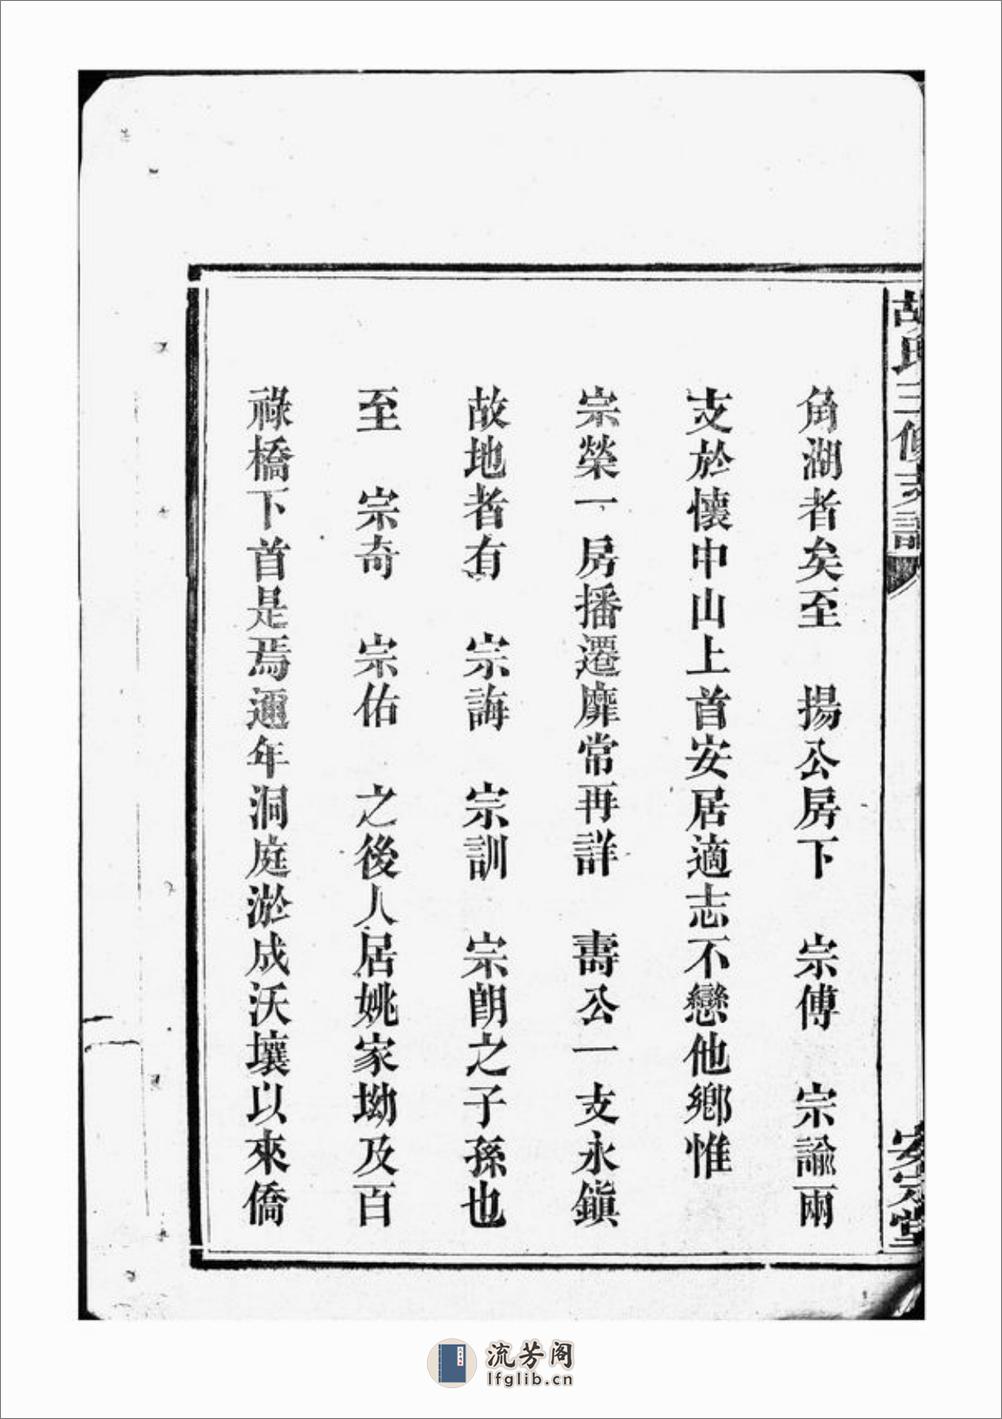 胡氏三修支譜
安定堂
角湖者矣至　揚公房下　宗傅　宗諭兩
支於懷中山上首安居適志不戀他鄉惟
宗榮一房播遷靡常再詳　壽公一支永鎮
故地者有　宗誨　宗訓　宗朗之子孫也
至　宗奇　宗佑　之後人居姚家坳及百
祿橋下首是焉邇年洞庭淤成沃壤以來僑
流芳阁
lfglib.cn